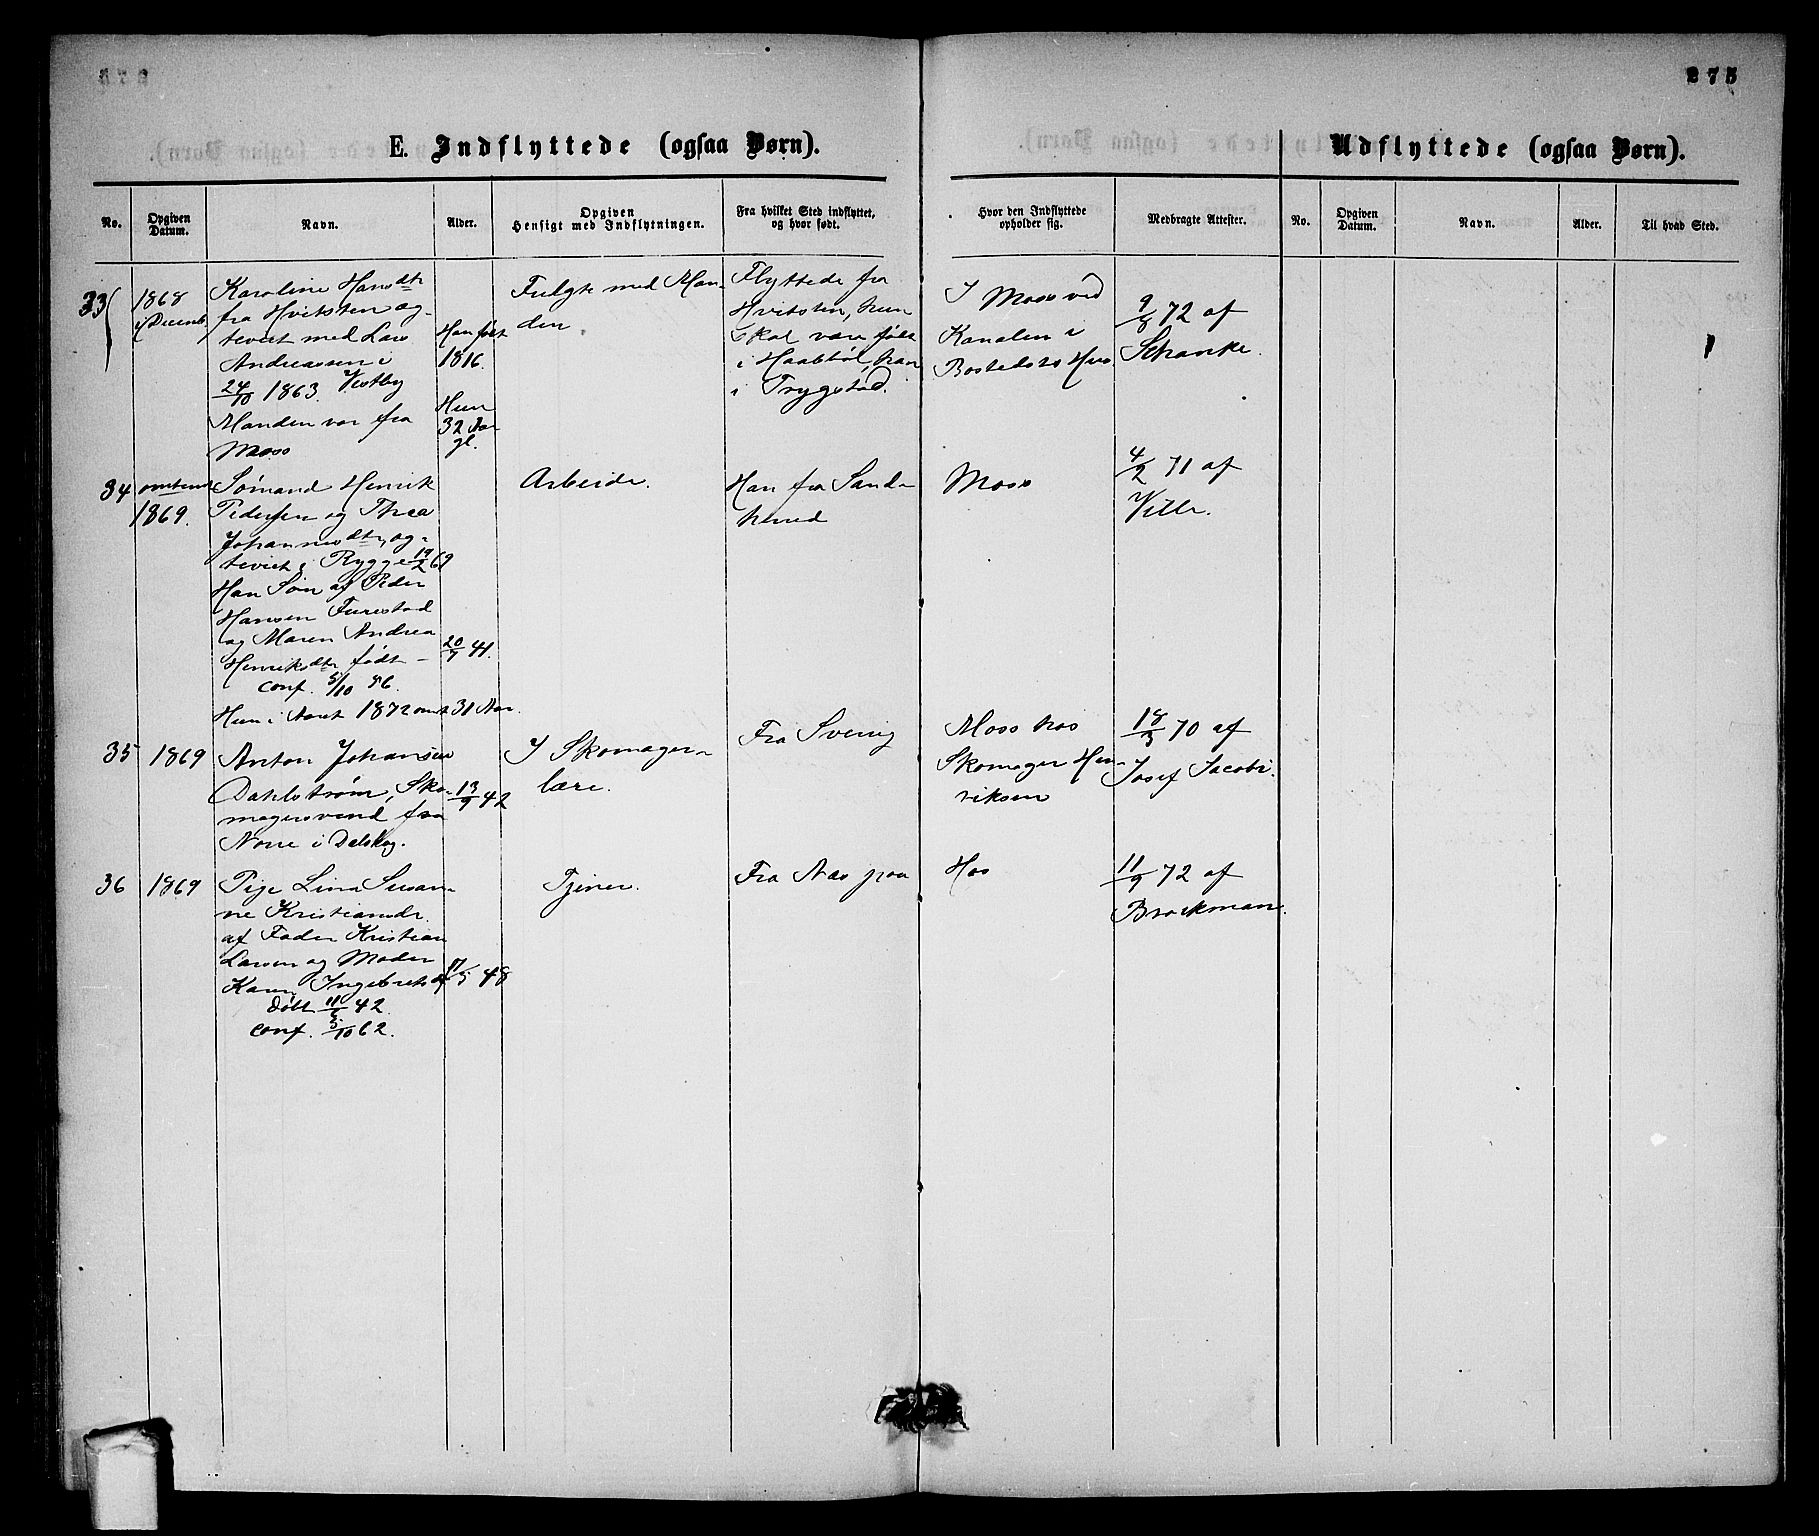 275
E. Indflyttede (ogsaa Børn).
Udflyttede (ogsaa Børn).
No.
Opgiven Datum.
Navn.
Alder.
Opgiven Hensigt med Indflytningen.
Fra hvilket Sted indflyttet, og hvor født.
Hvor den Indflyttede opholder sig.
Medbragte Attester.
No.
Opgiven Datum.
Navn.
Alder.
Til hvad Sted.
33
1868
i Decemb.
Karoline Hansdtr
fra Hvitsten æg-
teviet med Lars
Andreassen i
24/10 1863. Vestby
Manden var fra
Moss
Han født
1816.
Hun
32 Aar
gl.
Fulgte med Man-
den
Flyttede fra
Hvitsten, hun
skal være født
i Haabøl, han
i Trygstad.
I Moss ved
Kanalen i
Bostedets Hus.
9/8 72 af
Schanke.
34
omtrent
1869.
Sømand Henrik
Pedersen og Thea
Johannesdtr, æg-
teviet i Rygge 19/2 69
Han Søn af Peder
Hansen Furestad
og Maren Andrea
Henriksdtr født
conf. 5/10 56.
Hun i Aaret 1872 omt 31 Aar.
20/7 41.
Arbeide.
Han fra Sand-
herred
Moss
4/2 71 af
35
1869
Anton Johansen
Dahlstrøm, Sko-
magersvend fra
i Dalskog.
13/9 42
I Skomager-
lære.
Fra Sverig
Moss hos
Skomager Hen-
riksen
18/3 70 af
Josef Jacobi.
36
1869
Pige Lina Susan-
ne Kristiansdr.
af Fader Kristian
Larsen og Moder
Karen Ingebretsd
17/5 48
døbt 11/6 42.
conf. 5/10 62.
Tjener.
Fra Næs paa
Hos
11/9 72 af
Brockman.